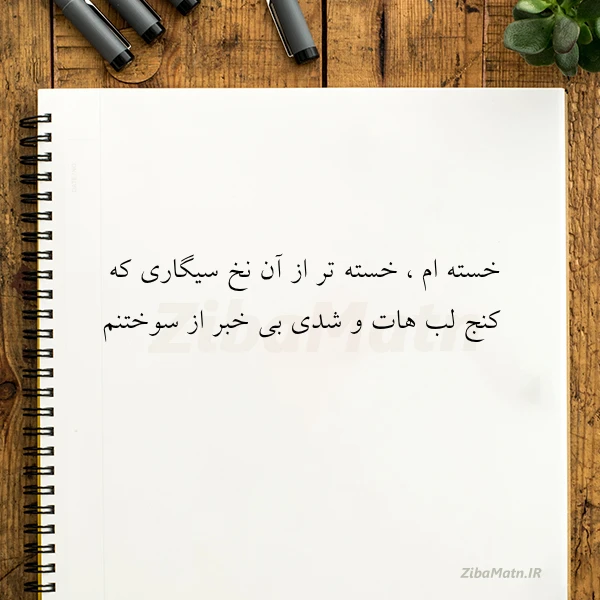 خسته ام ، خسته تر از آن نخ سیگاری که
کنج لب هات و شدی بی خبر از سوختنم
ZibaMatn
ZibaMatn.IR